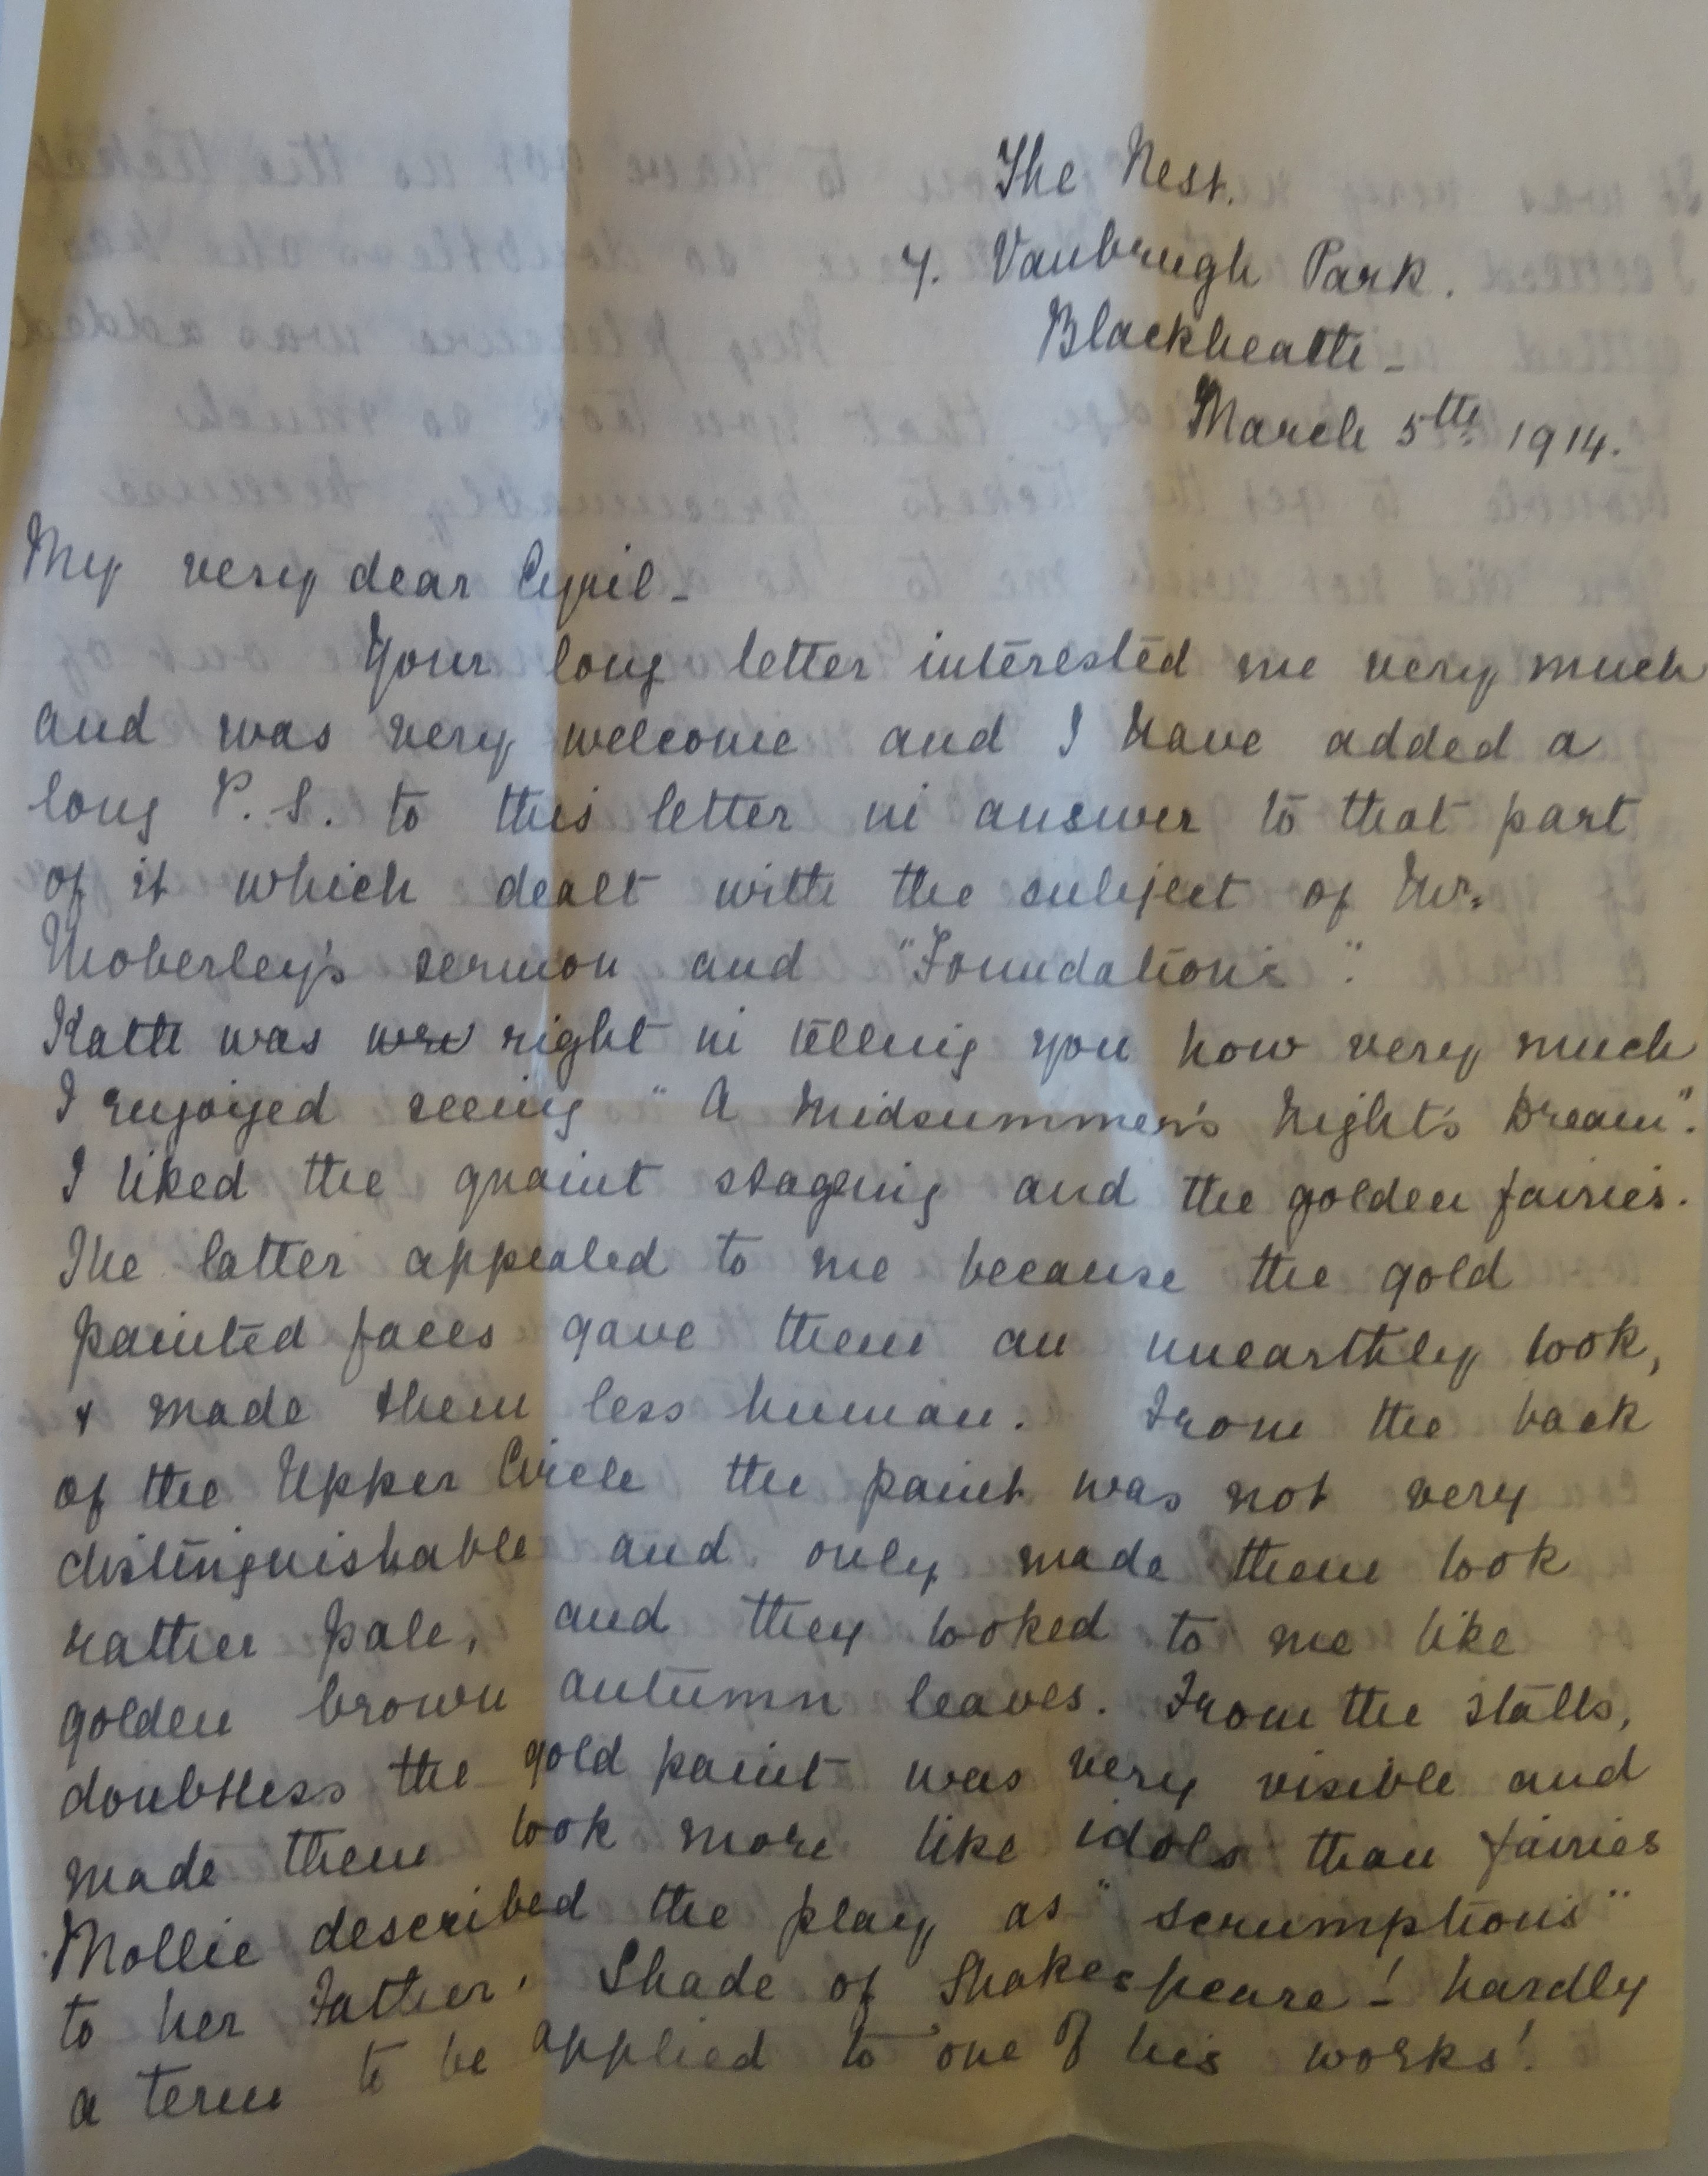 The Nest.
7. Vanbrugh Park.
Blackheath -
March 5th 1914.
My very dear Cyril -
Your long letter interested me very much
and was very welcome and I have added a
long P.S. to this letter in answer to that part
of it which dealt with the subject of Mr.
Moberley's sermon and "Foundations".
Kath was right in telling you how very much
I enjoyed seeing "A Midsummer's Night's Dream".
I liked the quaint staging and the golden fairies.
The latter appealed to me because the gold
painted faces gave them an unearthly look,
& made them less human. From the back
of the Upper Circle the paint was not very
distinguishable and only made them look
rather pale, and they looked to me like
golden brown autumn leaves. From the stalls,
doubtless the gold paint was very visible and
made them look more like idols than fairies
Mollie described the play as "scrumptious"
to her Father. Shade of Shakespeare! hardly
a term to be applied to one of his works!